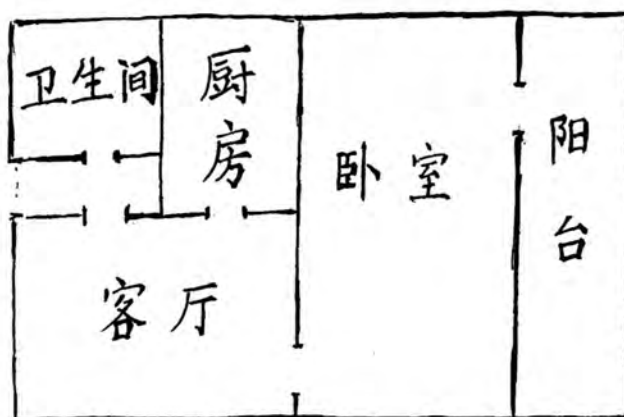 卫生间
厨房
卧室
阳台
客厅